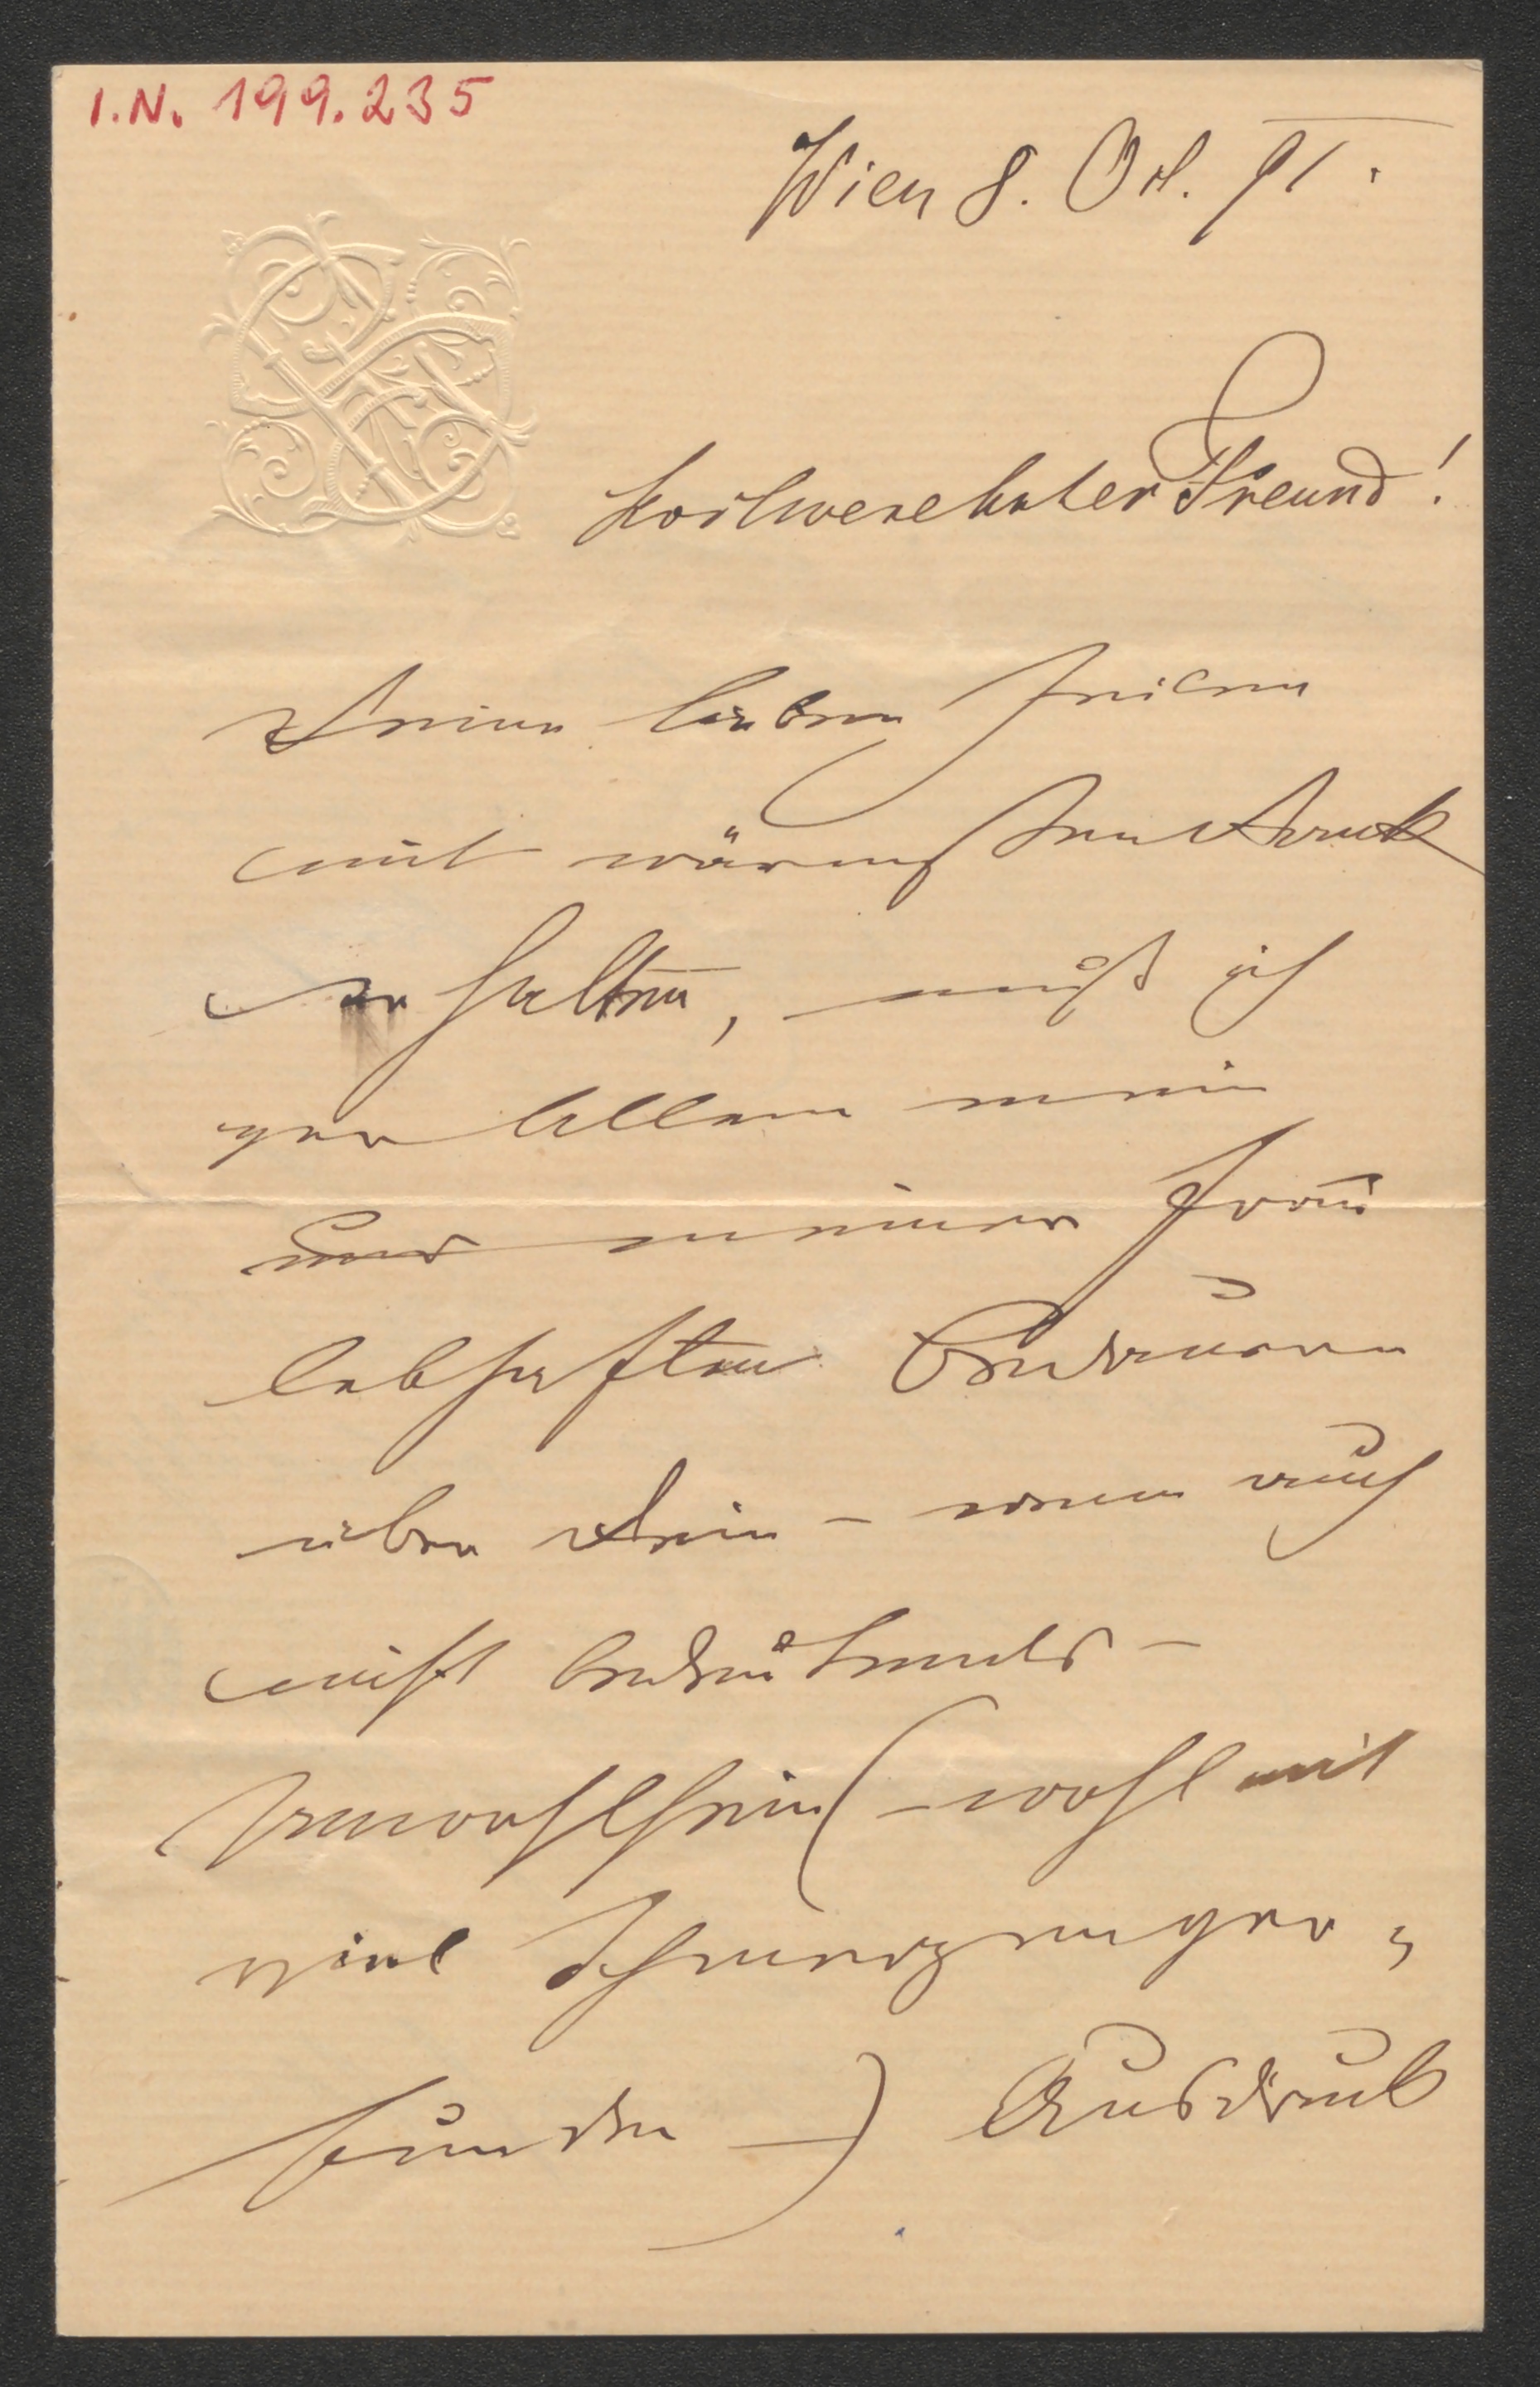 I.N. 199.235
Wien 8. Oct. 91.
Hochverehrter Freund!
Deine lieben Zeilen
mit wärmstem Dank
erhalten, muß ich
vor Allem mein
und meiner Frau
lebhaftes Bedauern
über Dein – wenn auch
nicht bedeutendes –
Unwohlsein (– wohl mit
viel Schmerzen ver-
bunden –) Ausdruck